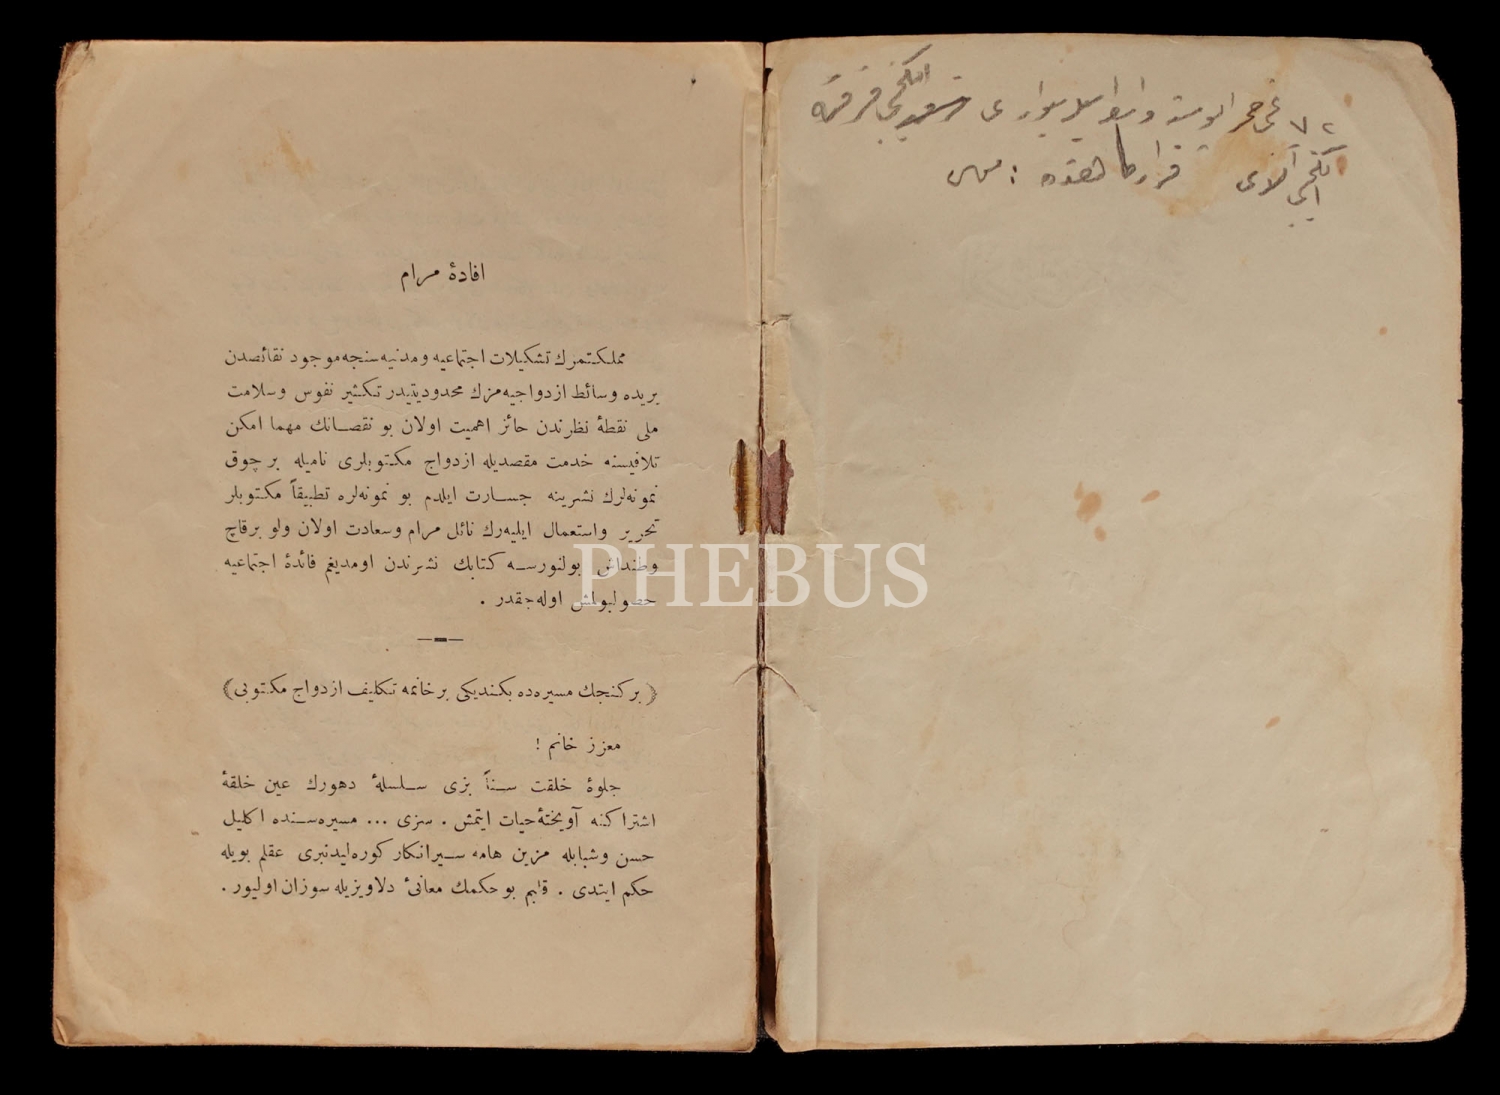 ٧٢
قرارگاهنده :
ایکنجی آلای
افادهٔ مرام
مملکتمزك تشکیلات اجتماعیه و مدنیه‌سنجه موجود نقائصدن
بریده وسائط ازدواجیه‌مزك محدودیتیدر تکثیر نفوس وسلامت
ملی نقطهٔ نظرندن حائز اهمیت اولان بو نقصانك مهما امکن
تلافیسنه خدمت مقصدیله ازدواج مکتوبلری نامیله بر چوق
نمونه‌لرك نشرینه جسارت ایلدم بو نمونه‌لره تطبیقاً مکتوبلر
تحریر واستعمال ایلیه‌رك نائل مرام وسعادت اولان ولو برقاچ
وطنداش بولنورسه کتابك نشرندن اومدیغم فائدهٔ اجتماعیه
حصولبولمش اوله‌جقدر .
( بر کنجك مسیره‌ده بکندیکی بر خانمه تکلیف ازدواج مکتوبی )
معزز خانم !
جلوهٔ خلقت سناً بزی سلسلهٔ دهورك عین خلقهٔ
اشتراکنه آویختهٔ حیات ایتمش . سزی ... مسیره‌سنده اکلیل
حسن وشبابله مزین هامه سیرانکار کوره‌لیدنبری عقلم بویله
حکم ایتدی . قلبم بو حکمك معانیٔ دلاویزیله سوزان اولیور .
PHEBUS